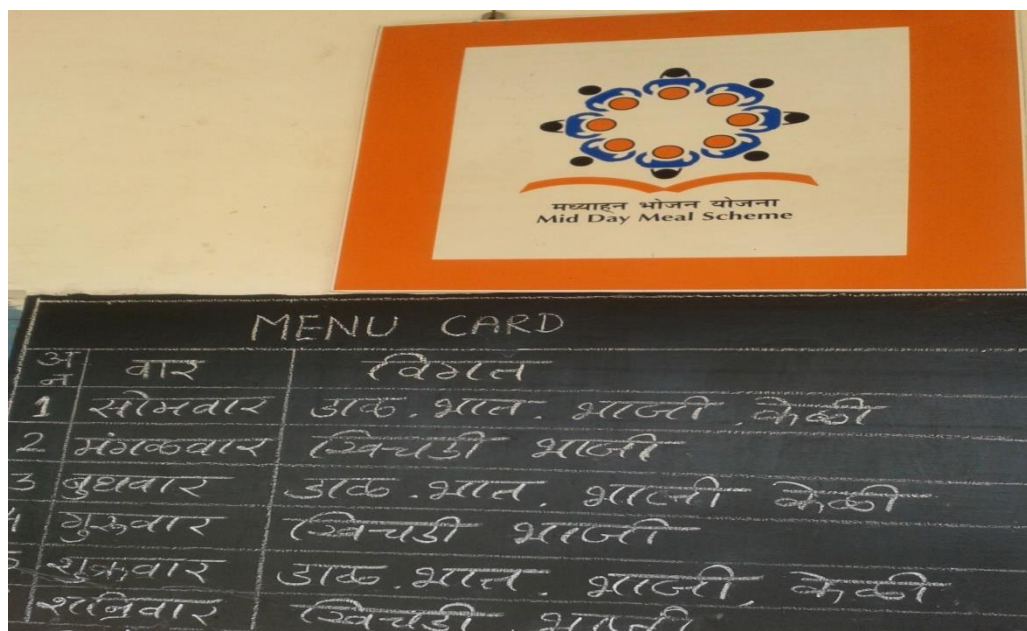 मध्याह्न भोजन योजना
Mid Day Meal Scheme
MENU CARD
अ न वार विगत
1 सोमवार डाळ . भात . भाजी , केळी
2 मंगळवार खिचडी भाजी
3 बुधवार डाळ . भात . भाजी केळी
4 गुरुवार खिचडी भाजी
5 शुक्रवार डाळ . भात . भाजी , केळी
शनिवार खिचडी भाजी